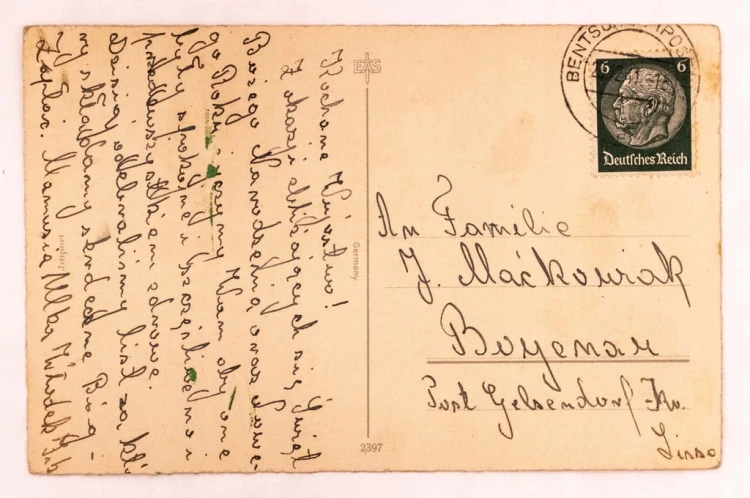 Kochane Wujostwo!
Z okazji zbliżających się Świąt
Bożego Narodzenia oraz Nowe-
go Roku życzymy Wam aby one
były spokojne i szczęśliwe no i
przedewszystkiem zdrowe.
Dzisiaj odebraliśmy list za któ
ry składamy serdeczne Bóg -
Zapłać. Mamusia Ulka Władek
EAS
Germany
2397
6 6
Deutsches Reich
An Familie
J. Maćkowiak
Bojenau
Post Gelsendorf-Kr.
Lissa